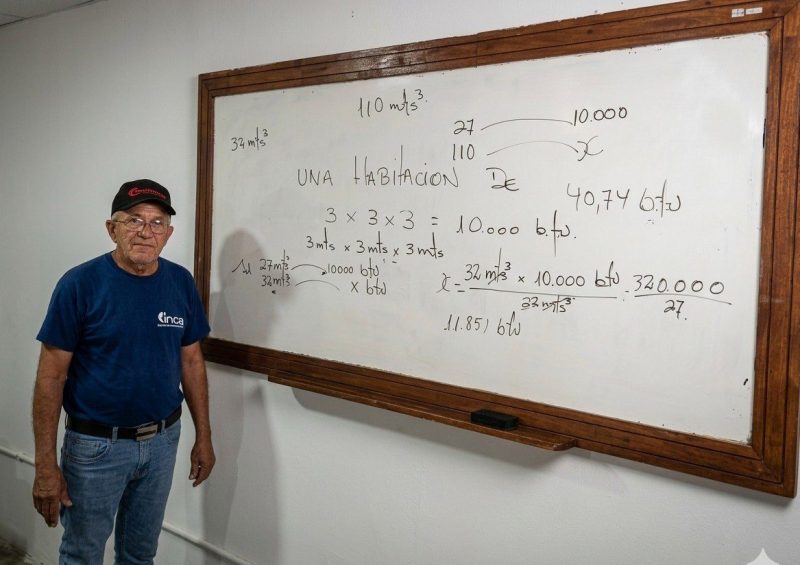 110 mts³.
32 mts³
27 10.000
110 x
UNA HABITACION DE
40,74 btu
3 x 3 x 3 = 10.000 btu.
3 mts x 3 mts x 3 mts
27 mts³ 10000 btu
32 mts³ x btu
x = 32 mts³ x 10.000 btu 320.000
27.
11.851 btu
inca